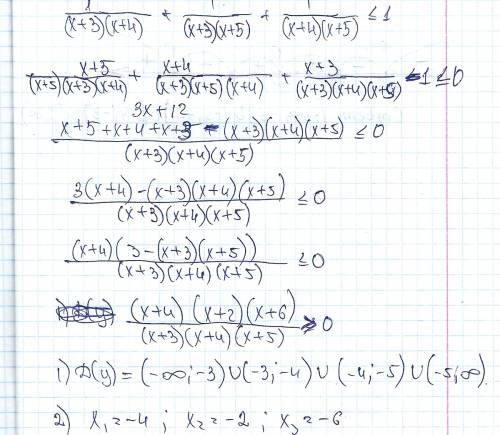 1/((x+3)(x+4)) + 1/((x+3)(x+5)) + 1/((x+4)(x+5)) ≤ 1
(x+5)/((x+5)(x+3)(x+4)) + (x+4)/((x+3)(x+5)(x+4)) + (x+3)/((x+3)(x+4)(x+5)) - 1 ≤ 0
3x+12
(x+5+x+4+x+3 - (x+3)(x+4)(x+5))/((x+3)(x+4)(x+5)) ≤ 0
(3(x+4)-(x+3)(x+4)(x+5))/((x+3)(x+4)(x+5)) ≤ 0
((x+4)(3-(x+3)(x+5)))/((x+3)(x+4)(x+5)) ≤ 0
((x+4)(x+2)(x+6))/((x+3)(x+4)(x+5)) ≥ 0
1) D(y) = (-∞;-3)∪(-3;-4)∪(-4;-5)∪(-5;∞).
2) x₁=-4 ; x₂=-2 ; x₃=-6